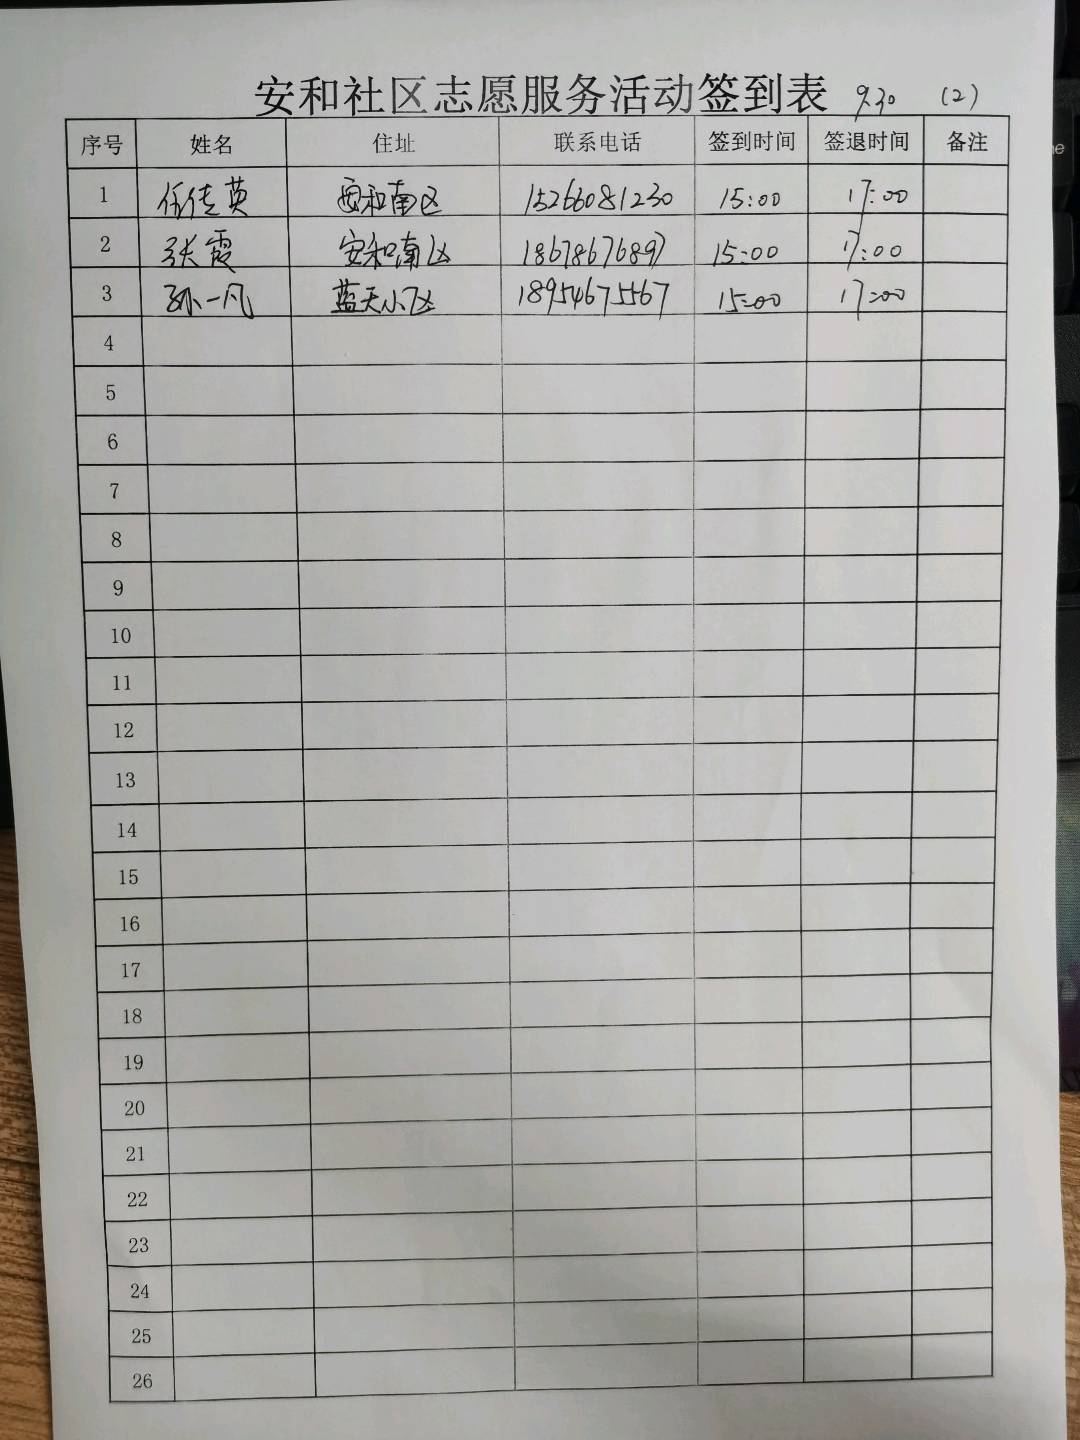 安和社区志愿服务活动签到表 9.30 (2)
序号 姓名 住址 联系电话 签到时间 签退时间 备注
1 任传英 西和南区 15266081230 15:00 17:00
2 张霞 安和南区 18678676897 15:00 17:00
3 孙一凡 蓝天小区 18954675567 15:00 17:00
4
5
6
7
8
9
10
11
12
13
14
15
16
17
18
19
20
21
22
23
24
25
26